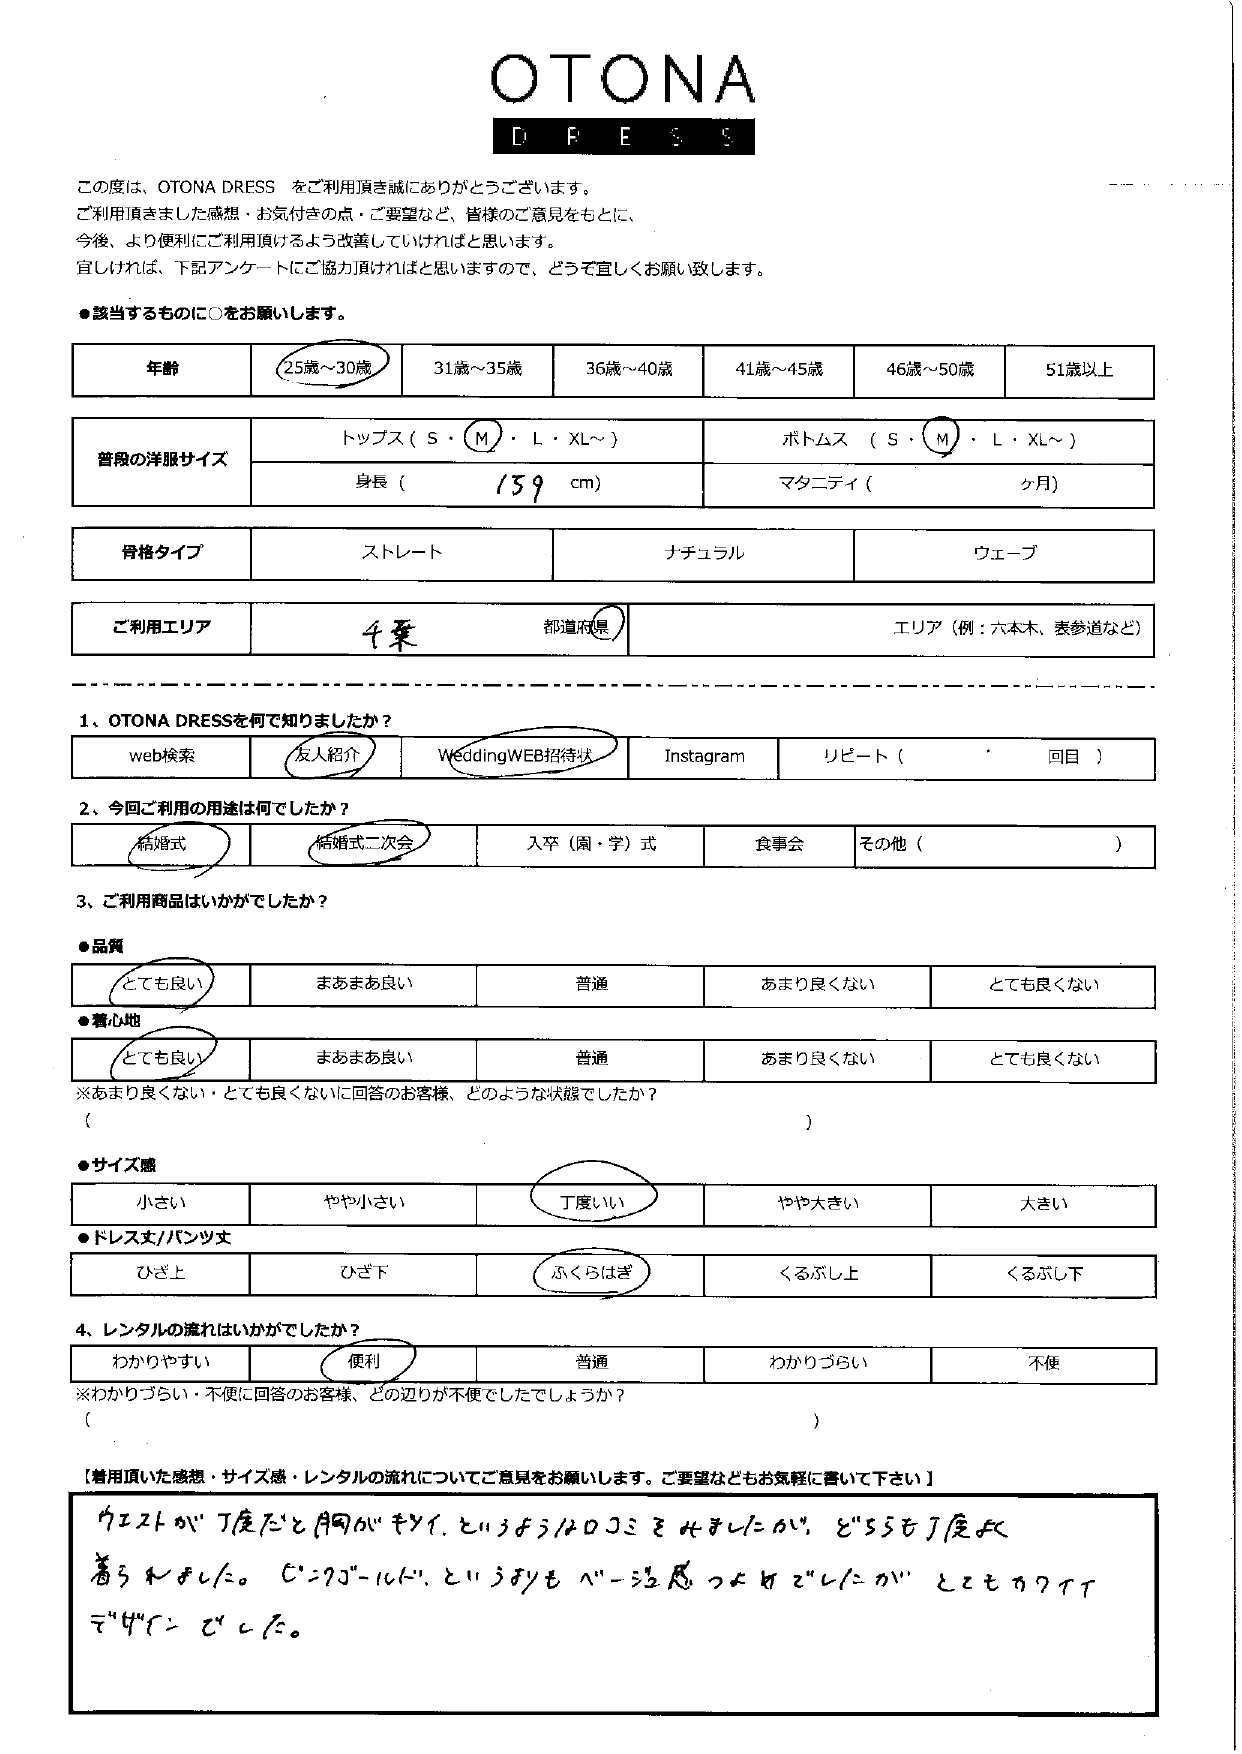 OTONA
DRESS
この度は、OTONA DRESS をご利用頂き誠にありがとうございます。
ご利用頂きました感想・お気付きの点・ご要望など、皆様のご意見をもとに、
今後、より便利にご利用頂けるよう改善していければと思います。
宜しければ、下記アンケートにご協力頂ければと思いますので、どうぞ宜しくお願い致します。
●該当するものに○をお願いします。
年齢 25歳～30歳 31歳～35歳 36歳～40歳 41歳～45歳 46歳～50歳 51歳以上
普段の洋服サイズ トップス ( S ・ M ・ L ・ XL～ ) ボトムス ( S ・ M ・ L ・ XL～ )
身長 ( 159 cm) マタニティ ( ヶ月)
骨格タイプ ストレート ナチュラル ウェーブ
ご利用エリア 千葉 都道府県 エリア（例：六本木、表参道など）
1、OTONA DRESSを何で知りましたか？
web検索 友人紹介 WeddingWEB招待状 Instagram リピート ( 回目 )
2、今回ご利用の用途は何でしたか？
結婚式 結婚式二次会 入卒（園・学）式 食事会 その他 ( )
3、ご利用商品はいかがでしたか？
●品質
とても良い まあまあ良い 普通 あまり良くない とても良くない
●着心地
とても良い まあまあ良い 普通 あまり良くない とても良くない
※あまり良くない・とても良くないに回答のお客様、どのような状態でしたか？
( )
●サイズ感
小さい やや小さい 丁度いい やや大きい 大きい
●ドレス丈/パンツ丈
ひざ上 ひざ下 ふくらはぎ くるぶし上 くるぶし下
4、レンタルの流れはいかがでしたか？
わかりやすい 便利 普通 わかりづらい 不便
※わかりづらい・不便に回答のお客様、どの辺りが不便でしたでしょうか？
( )
【着用頂いた感想・サイズ感・レンタルの流れについてご意見をお願いします。ご要望などもお気軽に書いて下さい 】
ウエストが丁度だと胸がキツイ、というような口コミをみましたが、どちらも丁度よく
着られました。ピンクゴールド、というよりもベージュ感つよめでしたが とてもカワイイ
デザインでした。